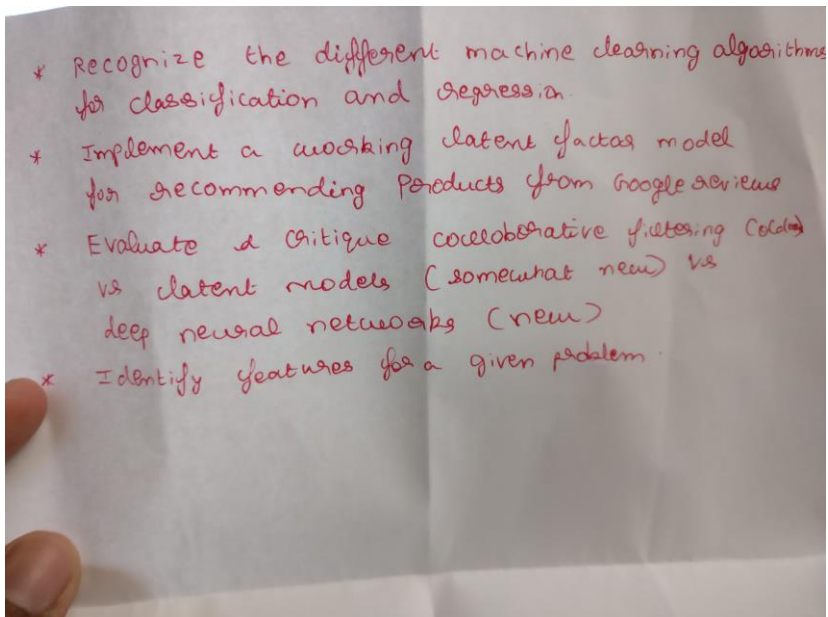 * Recognize the different machine learning algorithms
for classification and regression.
* Implement a working latent factor model
for recommending Products from Google reviews
* Evaluate & critique colloborative filtering (old)
vs latent models (somewhat new) vs
deep neural networks (new)
* Identify features for a given problem.